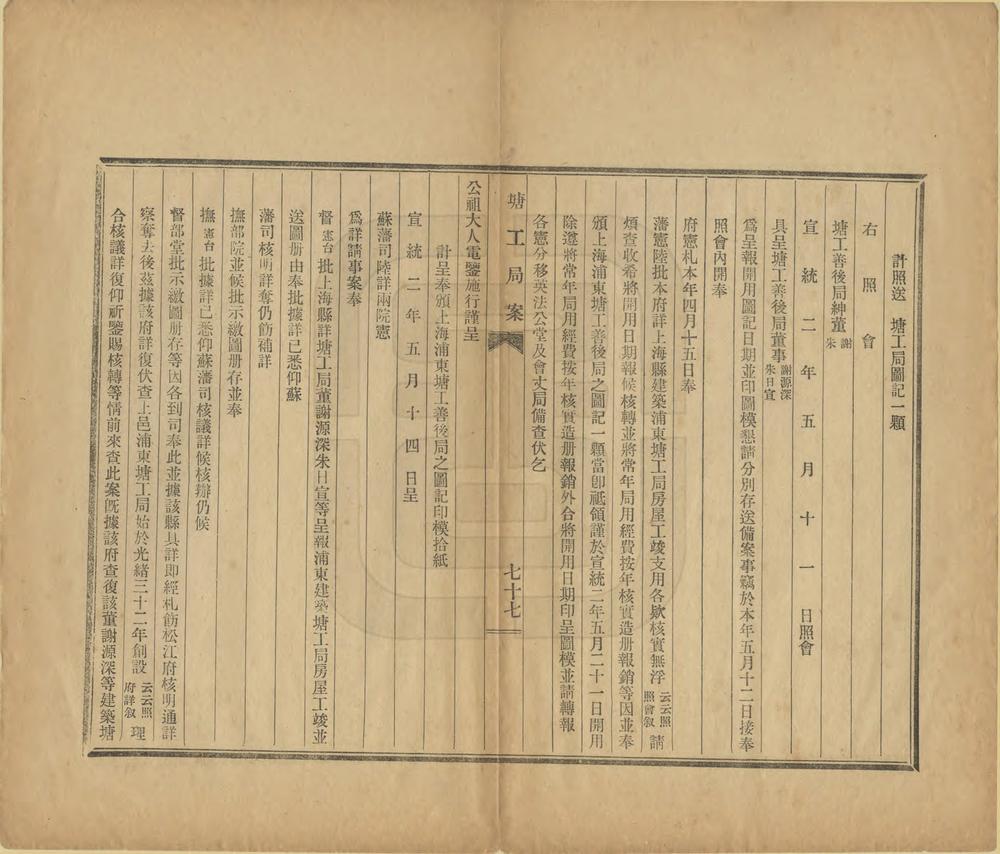 計照送　塘工局圖記一顆
右照會
塘工善後局紳董謝朱
宣統二年五月十一日照會
具呈塘工善後局董事謝源深朱日宣
爲呈報開用圖記日期並印圖模懇請分別存送備案事竊於本年五月十二日接奉
照會內開奉
府憲札本年四月十五日奉
藩憲陸批本府詳上海縣建築浦東塘工局房屋工竣支用各欵核實無浮云云照照會叙請
煩查收希將開用日期報候核轉並將常年局用經費按年核實造册報銷等因並奉
頒上海浦東塘工善後局之圖記一顆當卽祗領謹於宣統二年五月二十一日開用
除遵將常年局用經費按年核實造册報銷外合將開用日期印呈圖模並請轉報
各憲分移英法公堂及會丈局備查伏乞
塘工局案
七十七
公祖大人電鑒施行謹呈
計呈奉頒上海浦東塘工善後局之圖記印模拾紙
宣統二年五月十四日呈
蘇藩司陸詳兩院憲
爲詳請事案奉
督憲台批上海縣詳塘工局董謝源深朱日宣等呈報浦東建築塘工局房屋工竣並
送圖册由奉批據詳已悉仰蘇
藩司核明詳奪仍飭補詳
撫部院並候批示繳圖册存並奉
撫憲台批據詳已悉仰蘇藩司核議詳候核辦仍候
督部堂批示繳圖册存等因各到司奉此並據該縣具詳即經札飭松江府核明通詳
察奪去後茲據該府詳復伏查上邑浦東塘工局始於光緒三十二年創設云云照府詳叙理
合核議詳復仰祈鑒賜核轉等情前來查此案旣據該府查復該董謝源深等建築塘